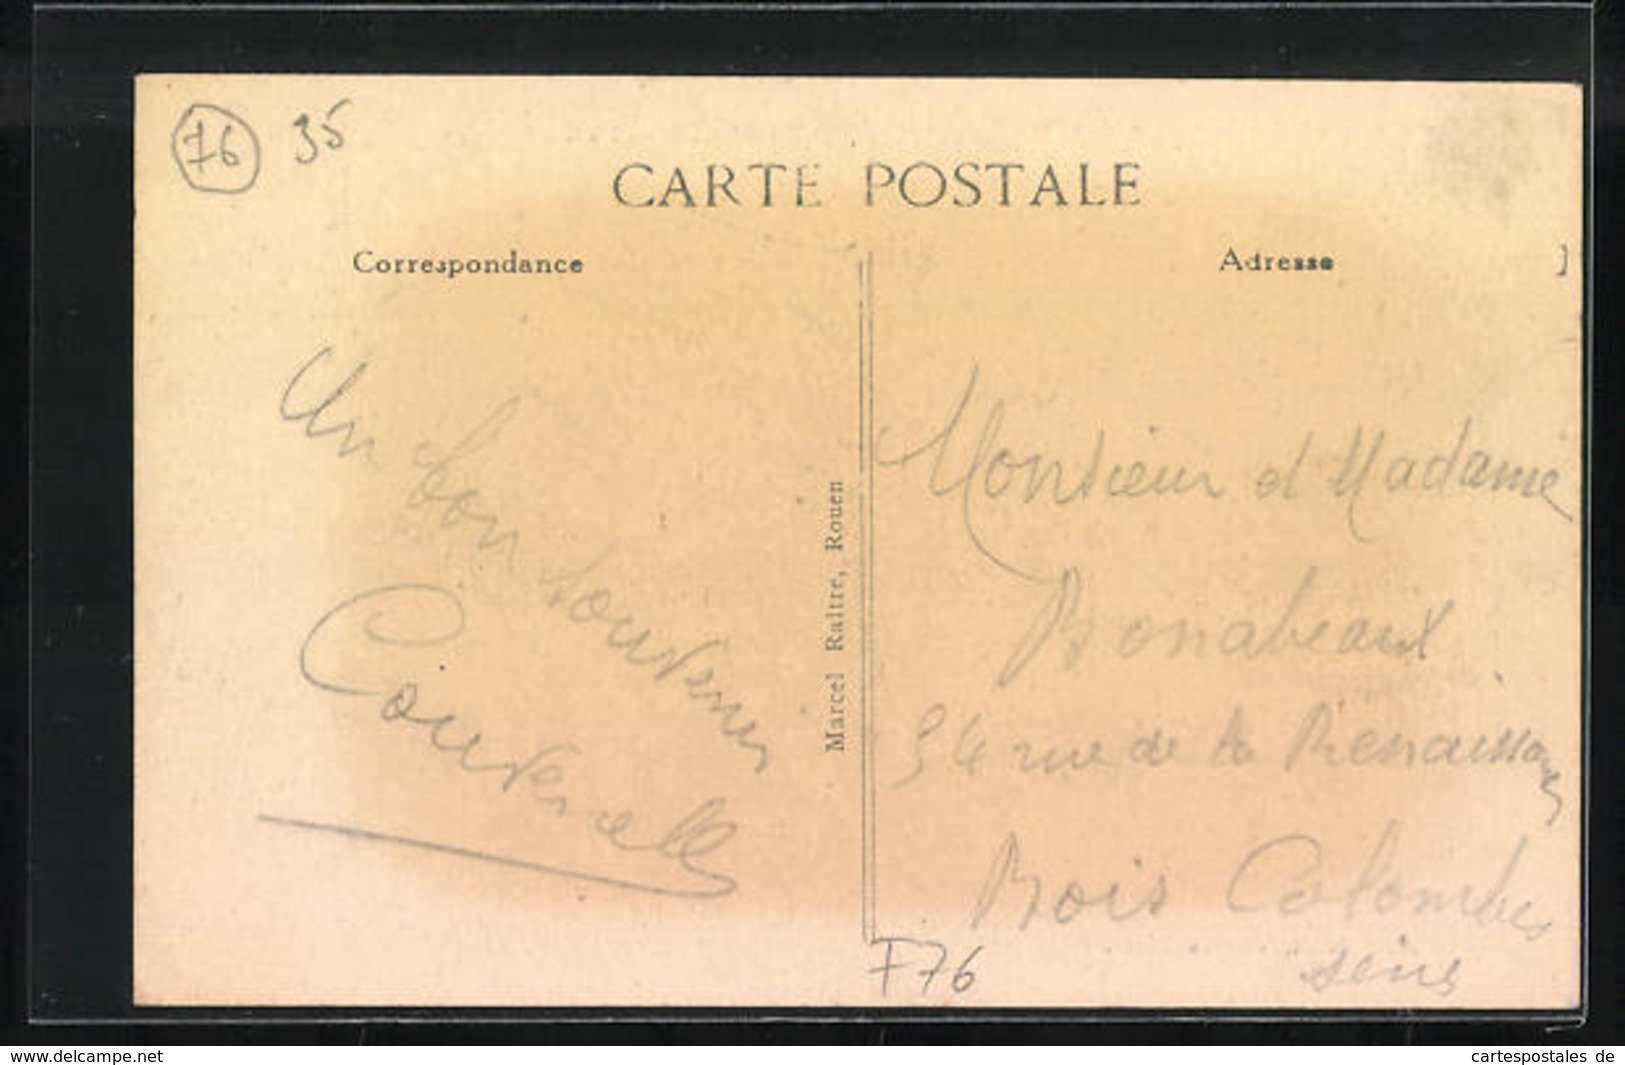 76 35
CARTE POSTALE
Correspondance
Adresse
Un bon souvenir
Marcel Raître, Rouen
Monsieur et Madame
Bonabeaux
54 rue de la Renaissance
Bois Colombes
Seine
F76
www.delcampe.net
cartespostales de